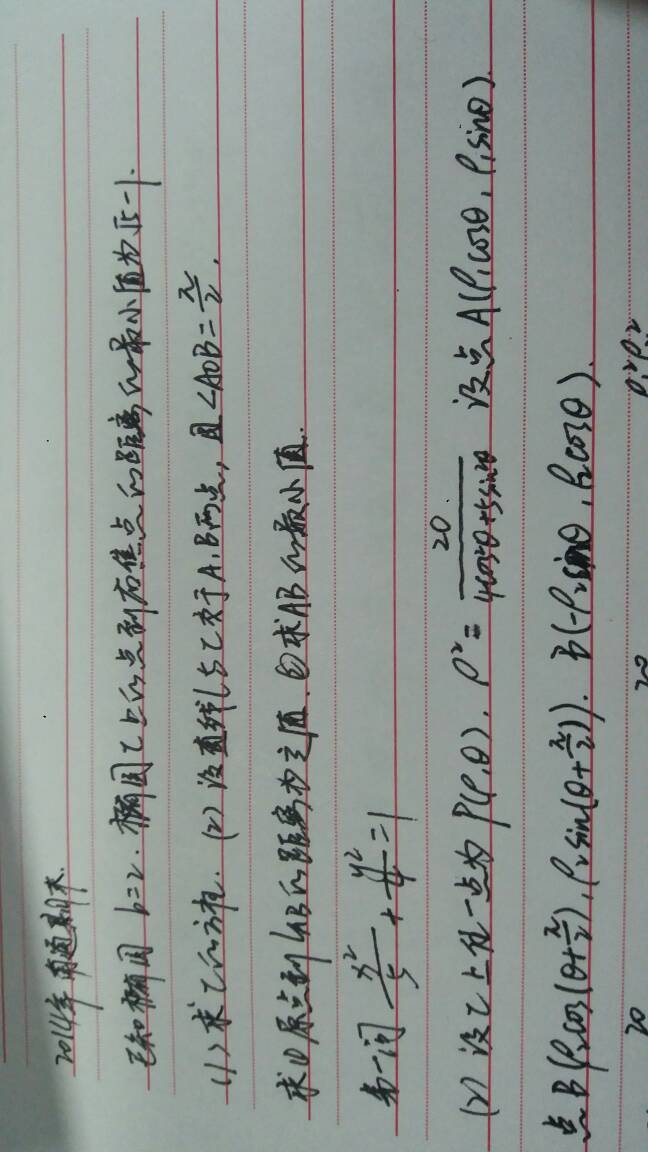 2014年南通期末.
已知椭圆 b=2. 椭圆C上的点到右焦点的距离的最小值为√5-1.
(1)求C的方程. (2)设直线l与C交于A,B两点, 且∠AOB=π/2.
求①原点到LAB的距离为定值. ②求AB的最小值.
第一问 x²/5 + y²/4 =1
(2) 设C上任一点为P(ρ,θ). ρ²= 20/(4cos²θ+5sin²θ) 设点A(ρ₁cosθ, ρ₁sinθ).
点B(ρ₂cos(θ+π/2), ρ₂sin(θ+π/2)). B(-ρ₂sinθ, ρ₂cosθ).
20 20 ρ₁²ρ₂²